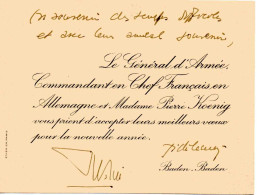 en souvenir des temps difficiles
et avec leur amical souvenir,
Le Général d'Armée,
Commandant en Chef Français en
Allemagne et Madame Pierre Koenig
vous prient d'accepter leurs meilleurs vœux
pour la nouvelle année.
Baden-Baden